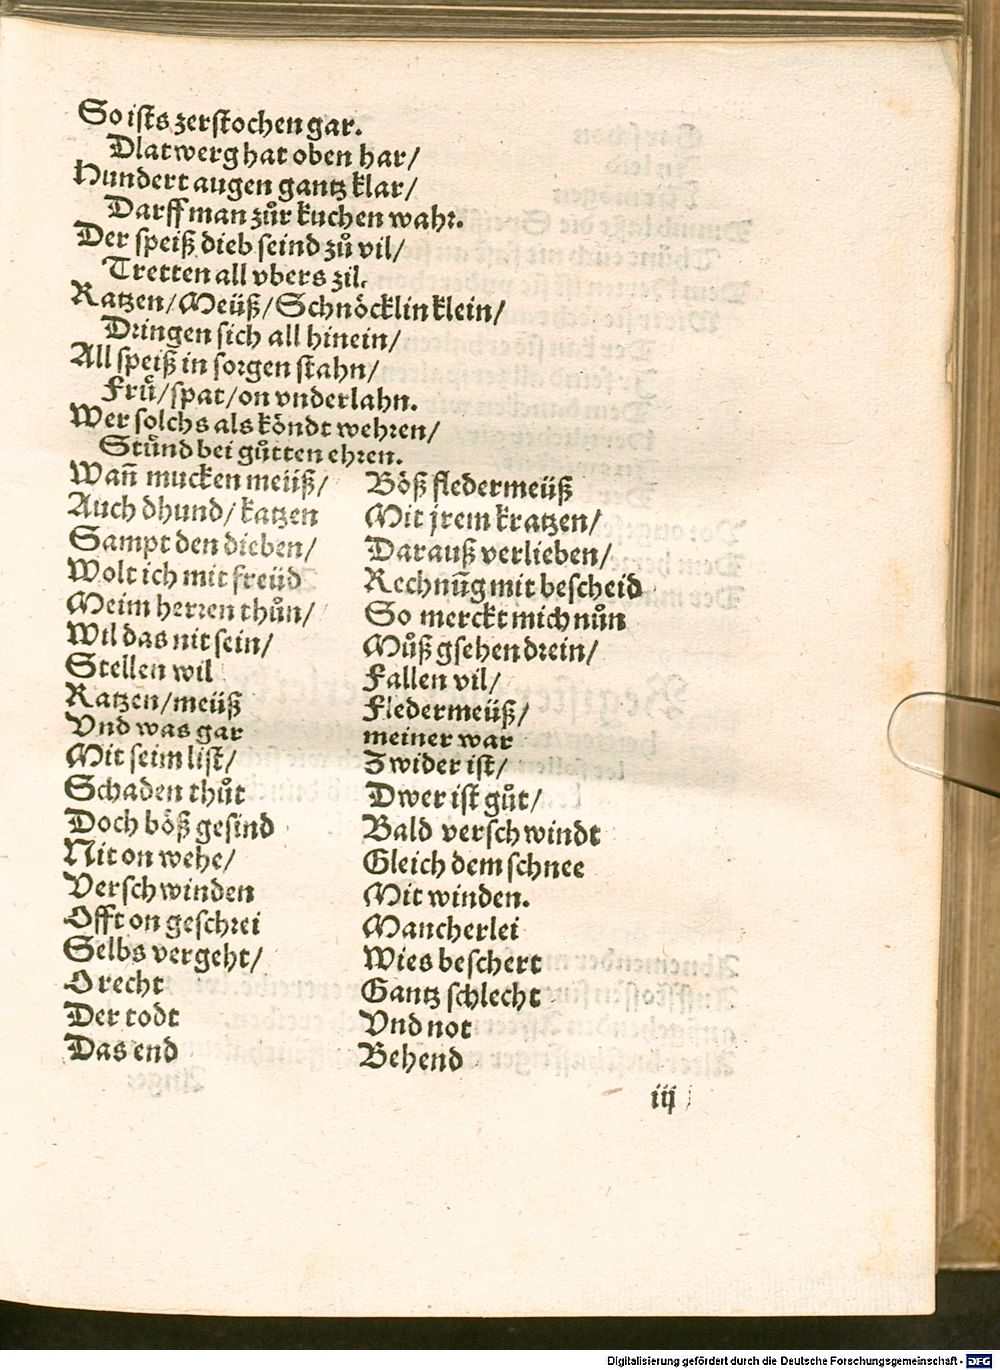 So ists zerstochen gar.
Dlatwerg hat oben har/
Hundert augen gantz klar/
Darff man zůr kuchen wahr.
Der speiß dieb seind zů vil/
Tretten all vbers zil.
Ratzen/Meüß/Schnöcklin klein/
Dringen sich all hinein/
All speiß in sorgen stahn/
Frü/spat/on vnderlahn.
Wer solchs als köndt wehren/
Stünd bei gůtten ehren.
Wañ mucken meüß/ Böß fledermeüß
Auch dhund/katzen Mit jrem kratzen/
Sampt den dieben/ Darauß verlieben/
Wolt ich mit freüd Rechnũg mit bescheid
Meim herren thůn/ So merckt mich nůn
Wil das nit sein/ Můß gsehen drein/
Stellen wil Fallen vil/
Ratzen/meüß Fledermeüß/
Vnd was gar meiner war
Mit seim list/ Zwider ist/
Schaden thůt Dwer ist gůt/
Doch böß gesind Bald verschwindt
Nit on wehe/ Gleich dem schnee
Verschwinden Mit winden.
Offt on geschrei Mancherlei
Selbs vergeht/ Wies beschert
O recht Gantz schlecht
Der todt Vnd not
Das end Behend
iij
Digitalisierung gefördert durch die Deutsche Forschungsgemeinschaft - DFG